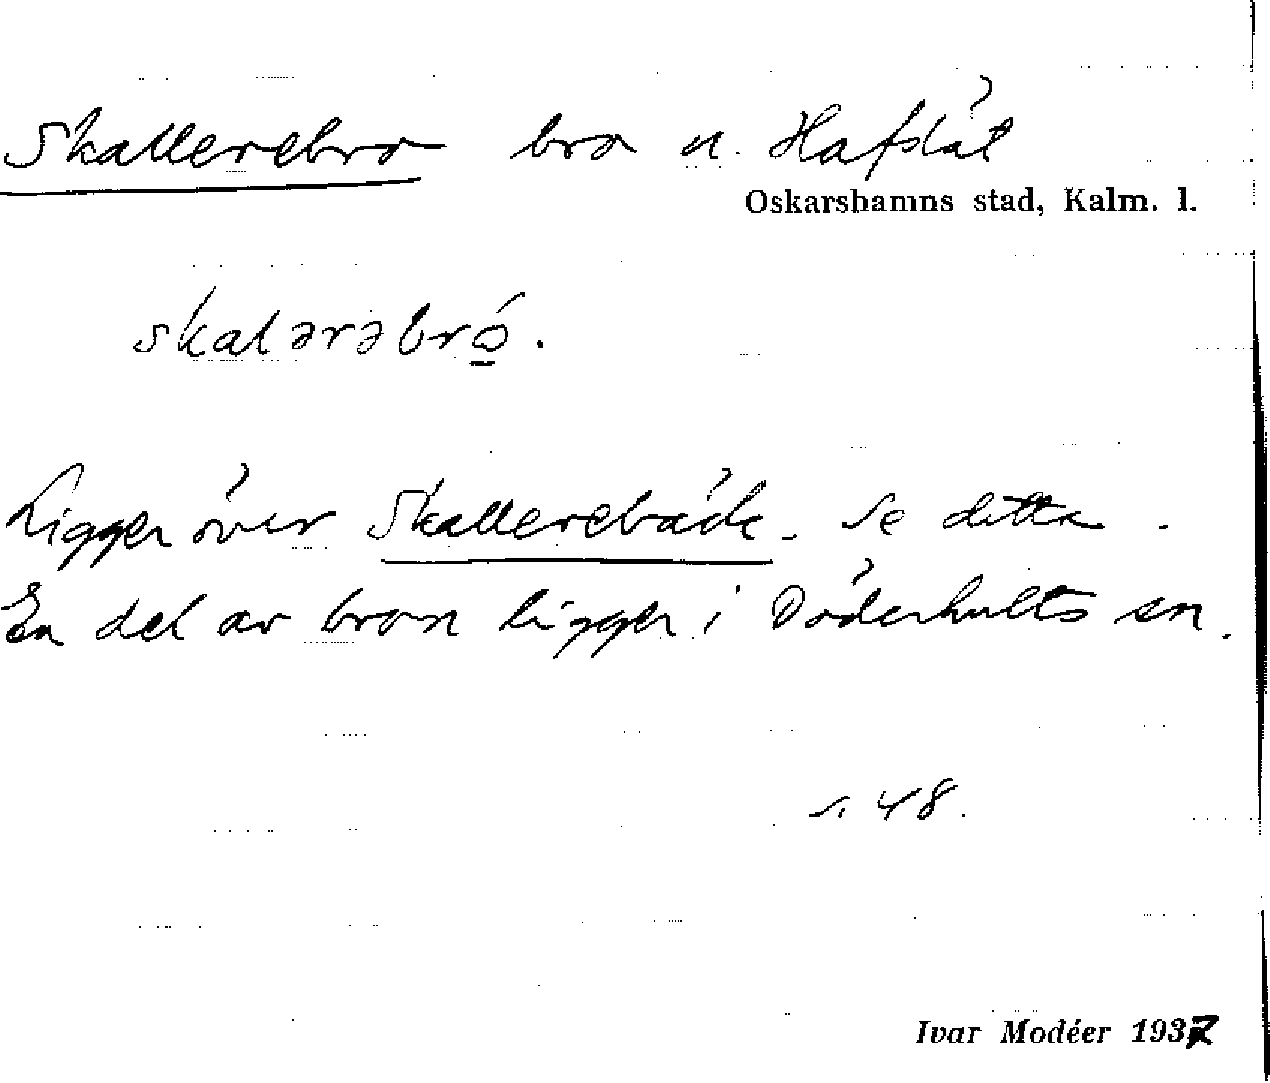 Skallerebro bro n. Hafslät
Oskarshamns stad, Kalm. l.
skalərəbrọ́.
Ligger över Skallerebäck. Se detta.
En del av bron ligger i Döderhults sn.
s. 48.
Ivar Modéer 1937